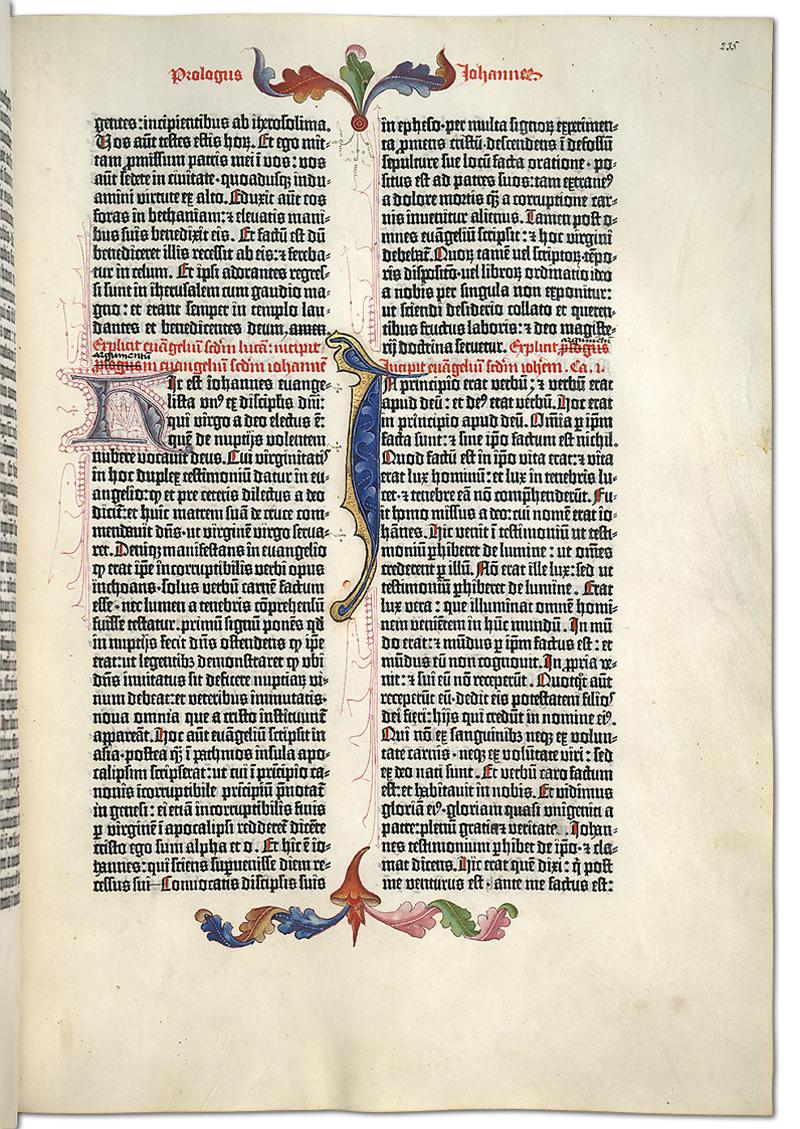 235
Prologus
Johannes
gentes: incipientibus ab iherosolima.
Vos aūt testes estis horꝝ. Et ego mit-
tam ꝓmissum patris mei ī vos: vos
aūt sedete in civitate· quoadusqꝫ indu-
amini virtute ex alto. Eduxit aūt eos
foras in bethaniam: ⁊ elevatis mani-
bus suis benedixit eis. Et factū est dū
benediceret illis recessit ab eis: ⁊ fereba-
tur in celum. Et ipsi adorantes regres-
si sunt in iherusalem cum gaudio ma-
gno: et erant semper in templo lau-
dantes et benedicentes deum, amen.
Explicit euāgeliū scdm lucā: incipit
argumentū
plogus in euangeliū scdm iohannē
Hic est iohannes euange-
lista vnꝰ ex discipĺis dn̄i:
qui virgo a deo electus ē:
quē de nuptijs volentem
nubere vocauit deus. Cui virginitatꝭ
in hoc duplex testimoniū datur in eu-
angelio: ꝙ et pre ceteris dilectus a deo
dicit̄: et huic matrem suā de cruce com-
mendauit dn̄s· ut virginē virgo serua-
ret. Deniqꝫ manifestans in euangelio
ꝙ erat ip̄e incorruptibilis verbi opus
inchoans· solus verbū carnē factum
esse· nec lumen a tenebris cōprehensū
fuisse testatur. primū signū ponēs qd̄
in nuptijs fecit dn̄s ostendens ꝙ ip̄e
erat: ut legentibꝫ demonstraret ꝙ ubi
dn̄s inuitatus sit deficere nuptiaꝝ vi-
num debeat: et veteribus immutatis·
noua omnia que a cristo instituunt̄
appareāt. Hoc aūt euāgeliū scripsit in
asia· postea ꝙ̄ ī pathmos insula apo-
calipsim scripserat: ut cui ī pricipio ca-
nonis īcorruptibile prīcipiū ꝓnotat̄
in genesi: ei etiā incorruptibilis finis
ꝑ virginē ī apocalipsi redderet̄ dicēte
cristo ego sum alpha et o. Et hic ē io-
hannes: qui sciens supuenisse diem re-
cessus sui· Conuocatis discipĺis suis
in epheso· per multa signoꝝ experimen-
ta ꝓmens cristū· descendens ī defossū
sepulture sue locū facta oratione· po-
situs est ad patres suos: tam extraneꝰ
a dolore mortis ꝙ̄ a corruptione car-
nis inuenitur alienus. Tamen post o-
mnes euāgeliū scripsit: ⁊ hoc virgini
debebat̄. Quoꝝ tamē vel scriptoꝝ· tēpo-
ris dispositō· vel libroꝝ ordinatio ideo
a nobis per singula non exponitur:
ut sciendi desiderio collato et queren-
tibus fructus laboris: ⁊ deo magiste-
rij doctrina seruetur. Explicit plogus
argumentū
Incipit euāgeliū scdm iohēm. Ca. i.
In principio erat verbū: ⁊ verbū erat
apud deū: et deꝰ erat verbū. Hoc erat
in principio apud deū. Om̄ia ꝑ ip̄m
facta sunt: ⁊ sine ip̄o factum est nichil.
Quod factū est in ip̄o vita erat: ⁊ vita
erat lux hominū: et lux in tenebris lu-
cet· ⁊ tenebre eā nō comp̄henderūt. Fu-
it homo missus a deo: cui nomē erat io-
hānes. Hic venit ī testimoniū ut testi-
moniū ꝑhiberet de lumine: ut om̄es
crederent ꝑ illū. Nō erat ille lux: sed ut
testimoniū ꝑhiberet de lumine. Erat
lux vera: que illuminat omnē homi-
nem venientē in hūc mundū. In mū-
do erat: ⁊ mūdus ꝑ ip̄m factus est: et
mūdus eū non cognouit. In ꝓpria ve-
nit: ⁊ sui eū nō receperūt. Quotꝙt aūt
receperūt eū· dedit eis potestatem filioꝝ
dei fieri: hijs qui credūt in nomine eiꝰ.
Qui nō ex sanguinibꝫ neqꝫ ex volun-
tate carnis· neqꝫ ex volūtate viri: sed
ex deo nati sunt. Et verbū caro factum
est: et habitauit in nobis. Et vidimus
gloriā eiꝰ· gloriam quasi vnigeniti a
patre: plenū gratia ⁊ veritate. Johan-
nes testimonium ꝑhibet de ip̄o· ⁊ cla-
mat dicens. Hic erat quē dixi: q̇ post
me venturus est· ante me factus est: